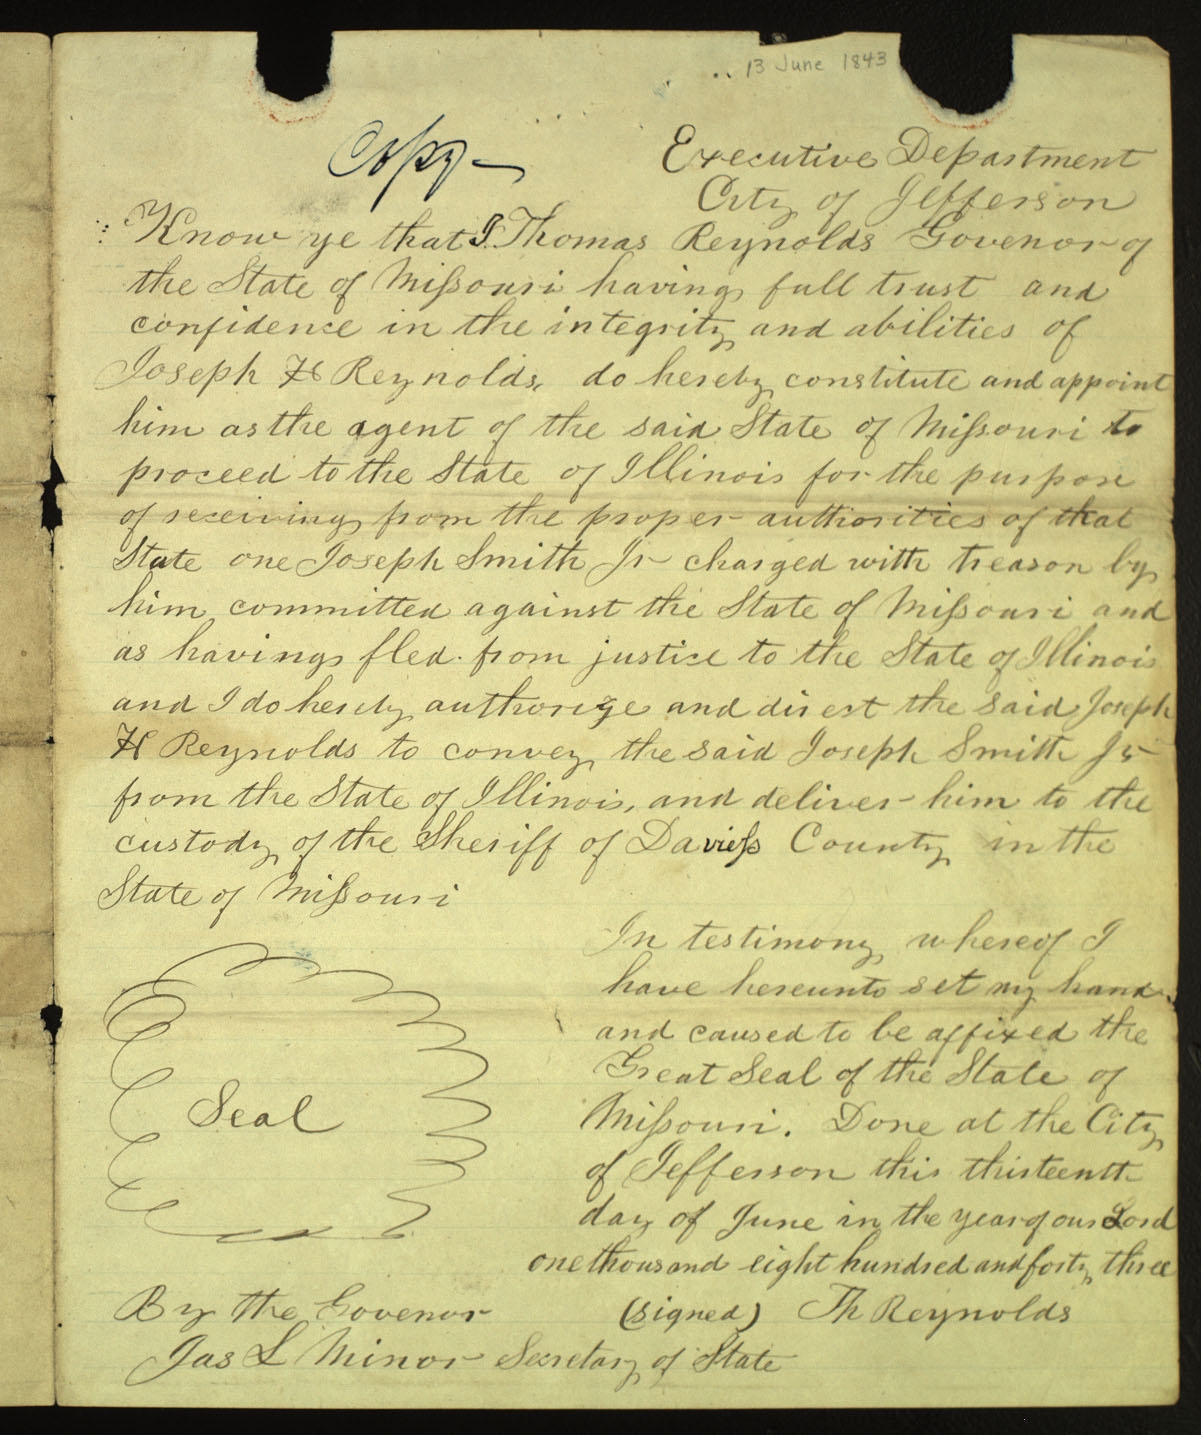 13 June 1843
Copy
Executive Department
City of Jefferson
Know ye that I. Thomas Reynolds Govenor of
the State of Missouri having full trust and
confidence in the integrity and abilities of
Joseph H Reynolds, do hereby constitute and appoint
him as the agent of the said State of Missouri to
proceed to the State of Illinois for the purpose
of receiving from the proper authorities of that
State one Joseph Smith Jr charged with treason by
him committed against the State of Missouri and
as having fled from justice to the State of Illinois
and I do hereby authorize and direct the said Joseph
H Reynolds to convey the said Joseph Smith Jr
from the State of Illinois, and deliver him to the
custody of the Sheriff of Daviess County in the
State of Missouri
In testimony whereof I
have hereunto set my hand
and caused to be affixed the
Great Seal of the State of
Missouri. Done at the City
of Jefferson this thirteenth
day of June in the year of our Lord
one thousand eight hundred and forty three
Seal
By the Govenor (signed) Th Reynolds
Jas L Minor Secretary of State